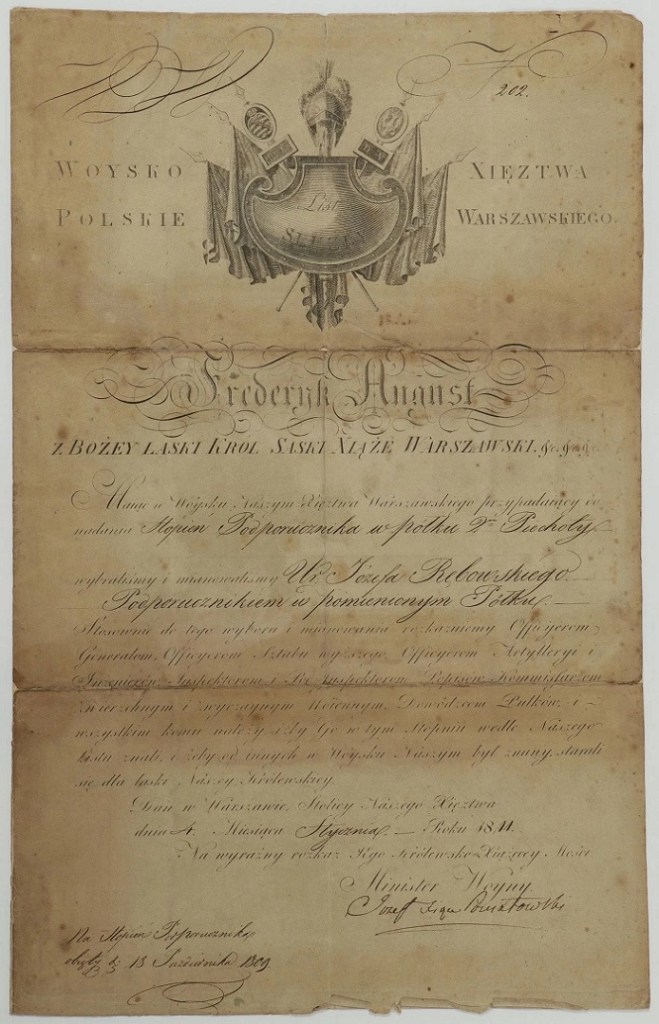 202.
WOYSKO XIĘZTWA
POLSKIE WARSZAWSKIEGO.
List
SŁUŻBY
Frederyk August
Z BOŻEY ŁASKI KROL SASKI XIĄŻE WARSZAWSKI. &c. &c. &c.
Maiąc w Woysku Naszym Xięztwa Warszawskiego przypadaiący do
nadania Stopień Podporucznika w półku 2m Piechoty
wybraliśmy i mianowaliśmy Ur. Józefa Rębowskiego
Podporucznikiem w pomienionym Półku.
Stosownie do tego wyboru i mianowania rozkazuiemy Officyerom,
Generałom, Officyerom Sztabu wyższego, Officyerom Artylleryi i
Inżenierów, Inspektorom i Pod Inspektorom Popisów, Kommissarzom
zwierzchnym i zwyczaynym Woiennym, Dowódzcom Pułków, i
wszystkim komu należy iżby Go w tym Stopniu wedle Naszego
Listu znali, i żeby od innych w Woysku Naszym był znany, starali
się dla łaski Naszey Królewskiey.
Dan w Warszawie, Stolicy Naszego Xięztwa
dnia 4. Miesiąca Stycznia. Roku 1811.
Na wyraźny rozkaz Jego Królewsko Xiążęcey Mości
Minister Woyny
Jozeff Xiąże Poniatowski
Na Stopień Podporucznika
obięty d. 13 Października 1809.